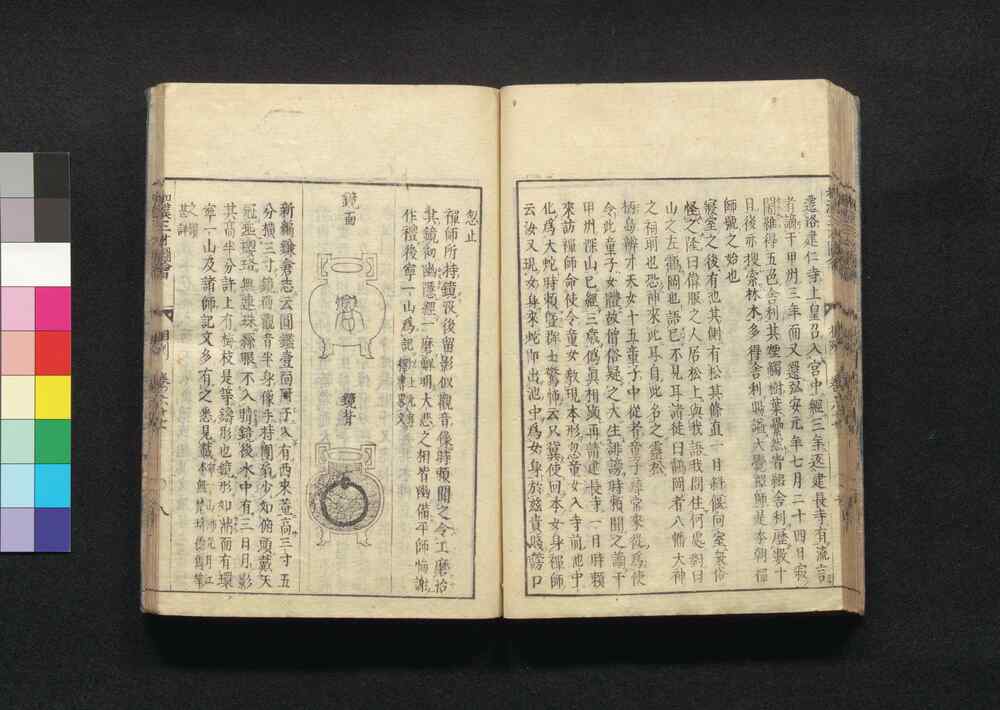 還洛建仁寺上皇召入宮中經三年返建長寺有流言
者謫于甲州三年而又還弘安元年七月二十四日寂
闍維得五色舍利其煙觸樹葉纍然皆綴舍利歷數十
日後亦搜索林木多得舍利賜謚大覺禪師是本朝禪
師號之始也
寢室之後有池其側有松其條直一日斜偃向室衆俗
怪之隆曰偉服之人居松上與我語我問住何處對曰
山之左鶴岡也語已不見耳諸徒曰鶴岡者八幡大神
之祠所也恐神來此耳自此名之靈松
柄島辨才天女十五童子中從者童子緣常來從爲使
令此童子女體故僧俗疑之大生誹謗時賴聞之謫于
甲州深山已經三歲僞眞相顯再請建長寺一日時賴
來訪禪師命使令童女敎現本形忽童女入寺前池中
化爲大蛇時賴曁諸士驚怖云又冀使回本女身禪師
云汝又現女身來蛇即出池中爲女身於玆貴賤謗口
忽止
禪師所持鏡沒後留影似觀音像時賴聞之令工磨治
其鏡初幽隱經一磨鮮明大悲之相皆幽備平師悔謝
作禮後寧一山爲記
鏡面
鏡背
新編鎌倉志云圓鑑壹面開子入有西來菴高三寸五
分橫三寸鏡面觀音半身像手持團扇少如俯頭戴天
冠垂瓔珞無連珠錦眼不入晴鏡後水中有三日月影
其高半分許上有梅枝是等鑄形也鏡形如鼎而有環
寧一山及諸師記文多有之悉見
甚詳
和漢三才圖會